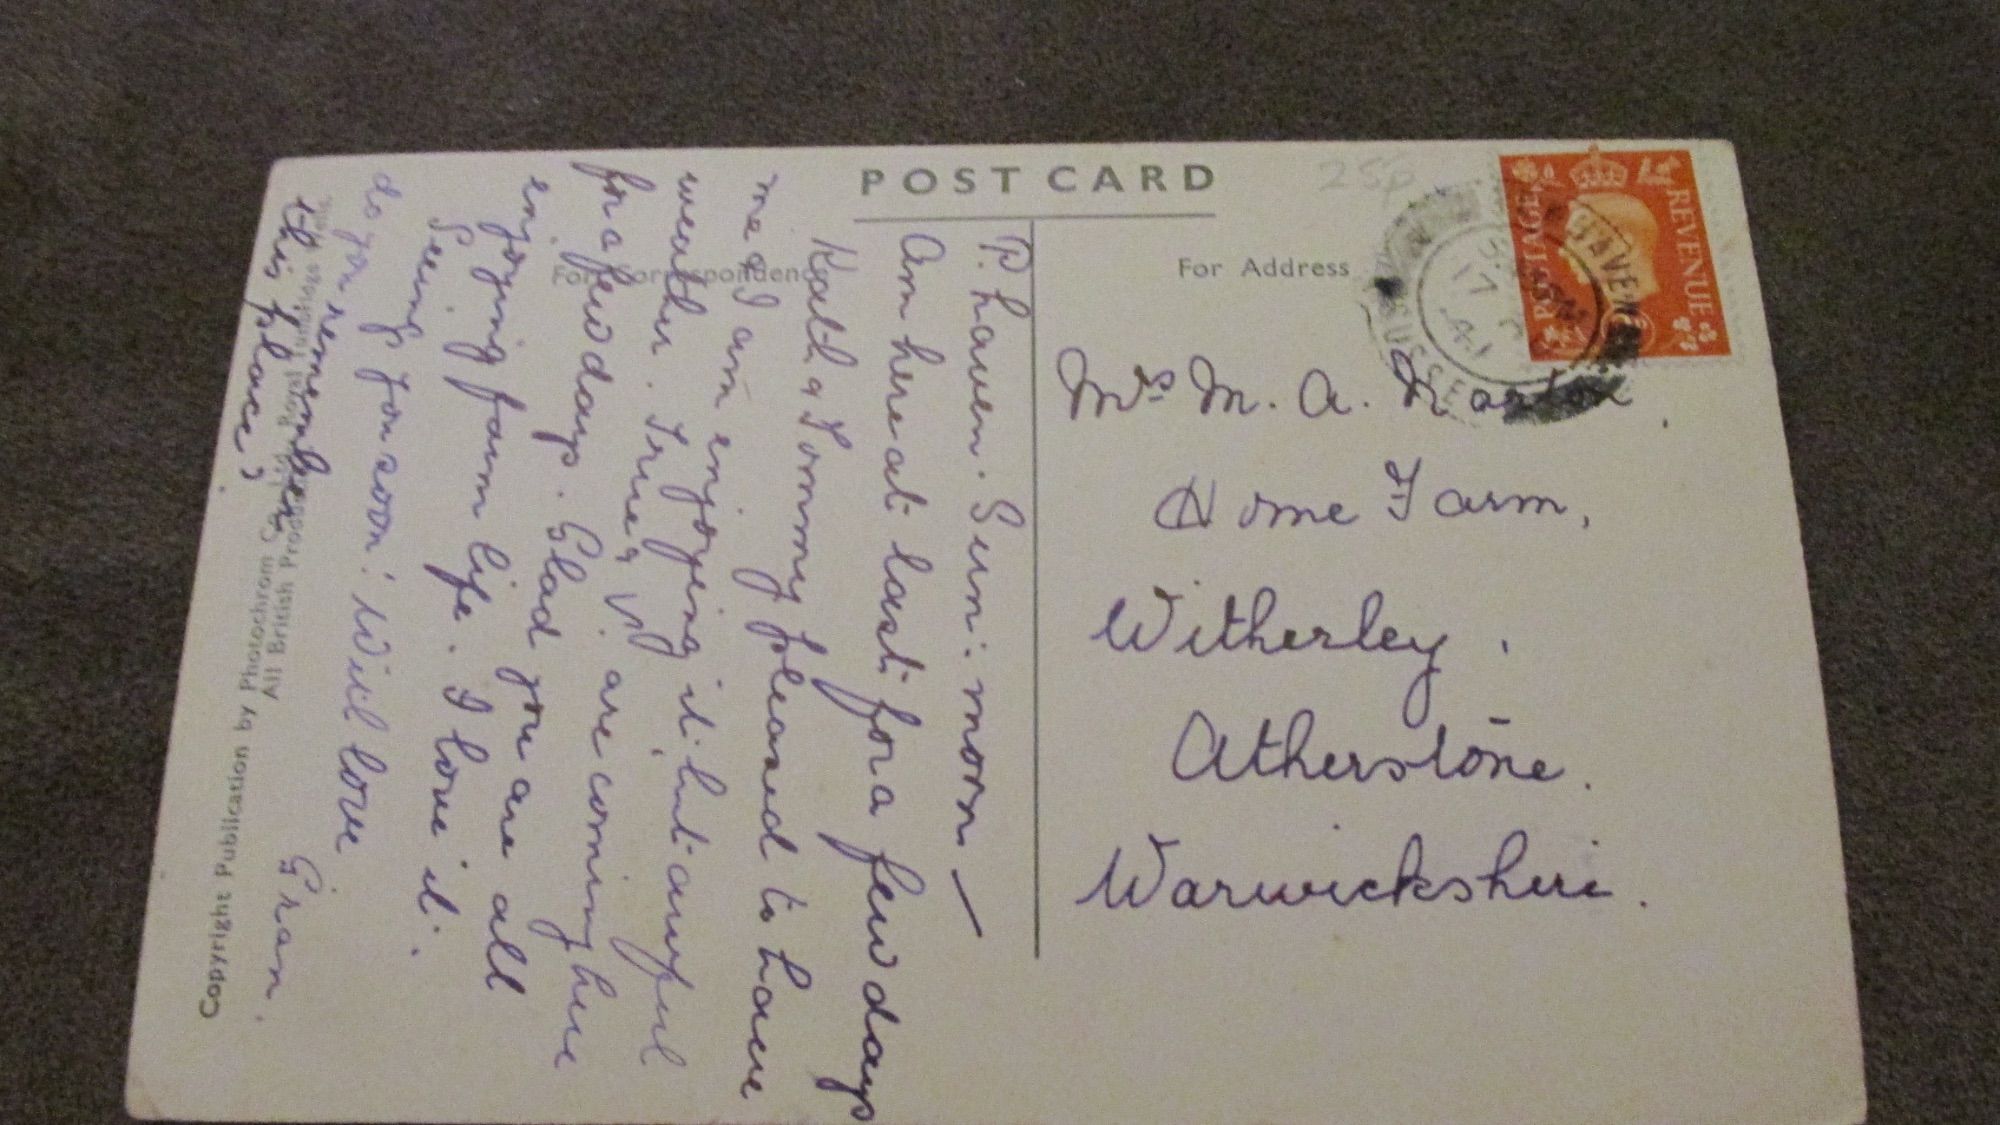 POST CARD
For Correspondence
For Address
25p
POSTAGE
REVENUE
P. haven. Sun: morn —
Am here at last for a few days
Kath & Tommy pleased to have
me & I am enjoying it, but awful
weather. Irene & Vi. are coming here
for a few days. Glad you are all
enjoying farm life. I love it.
Seeing you soon! Will love
do you remember
this place?
Gran.
Mrs M. A.
Home Farm,
Witherley.
Atherstone.
Warwickshire.
Copyright Publication by Photochrom Co. Ltd. Royal Tunbridge Wells.
All British Production